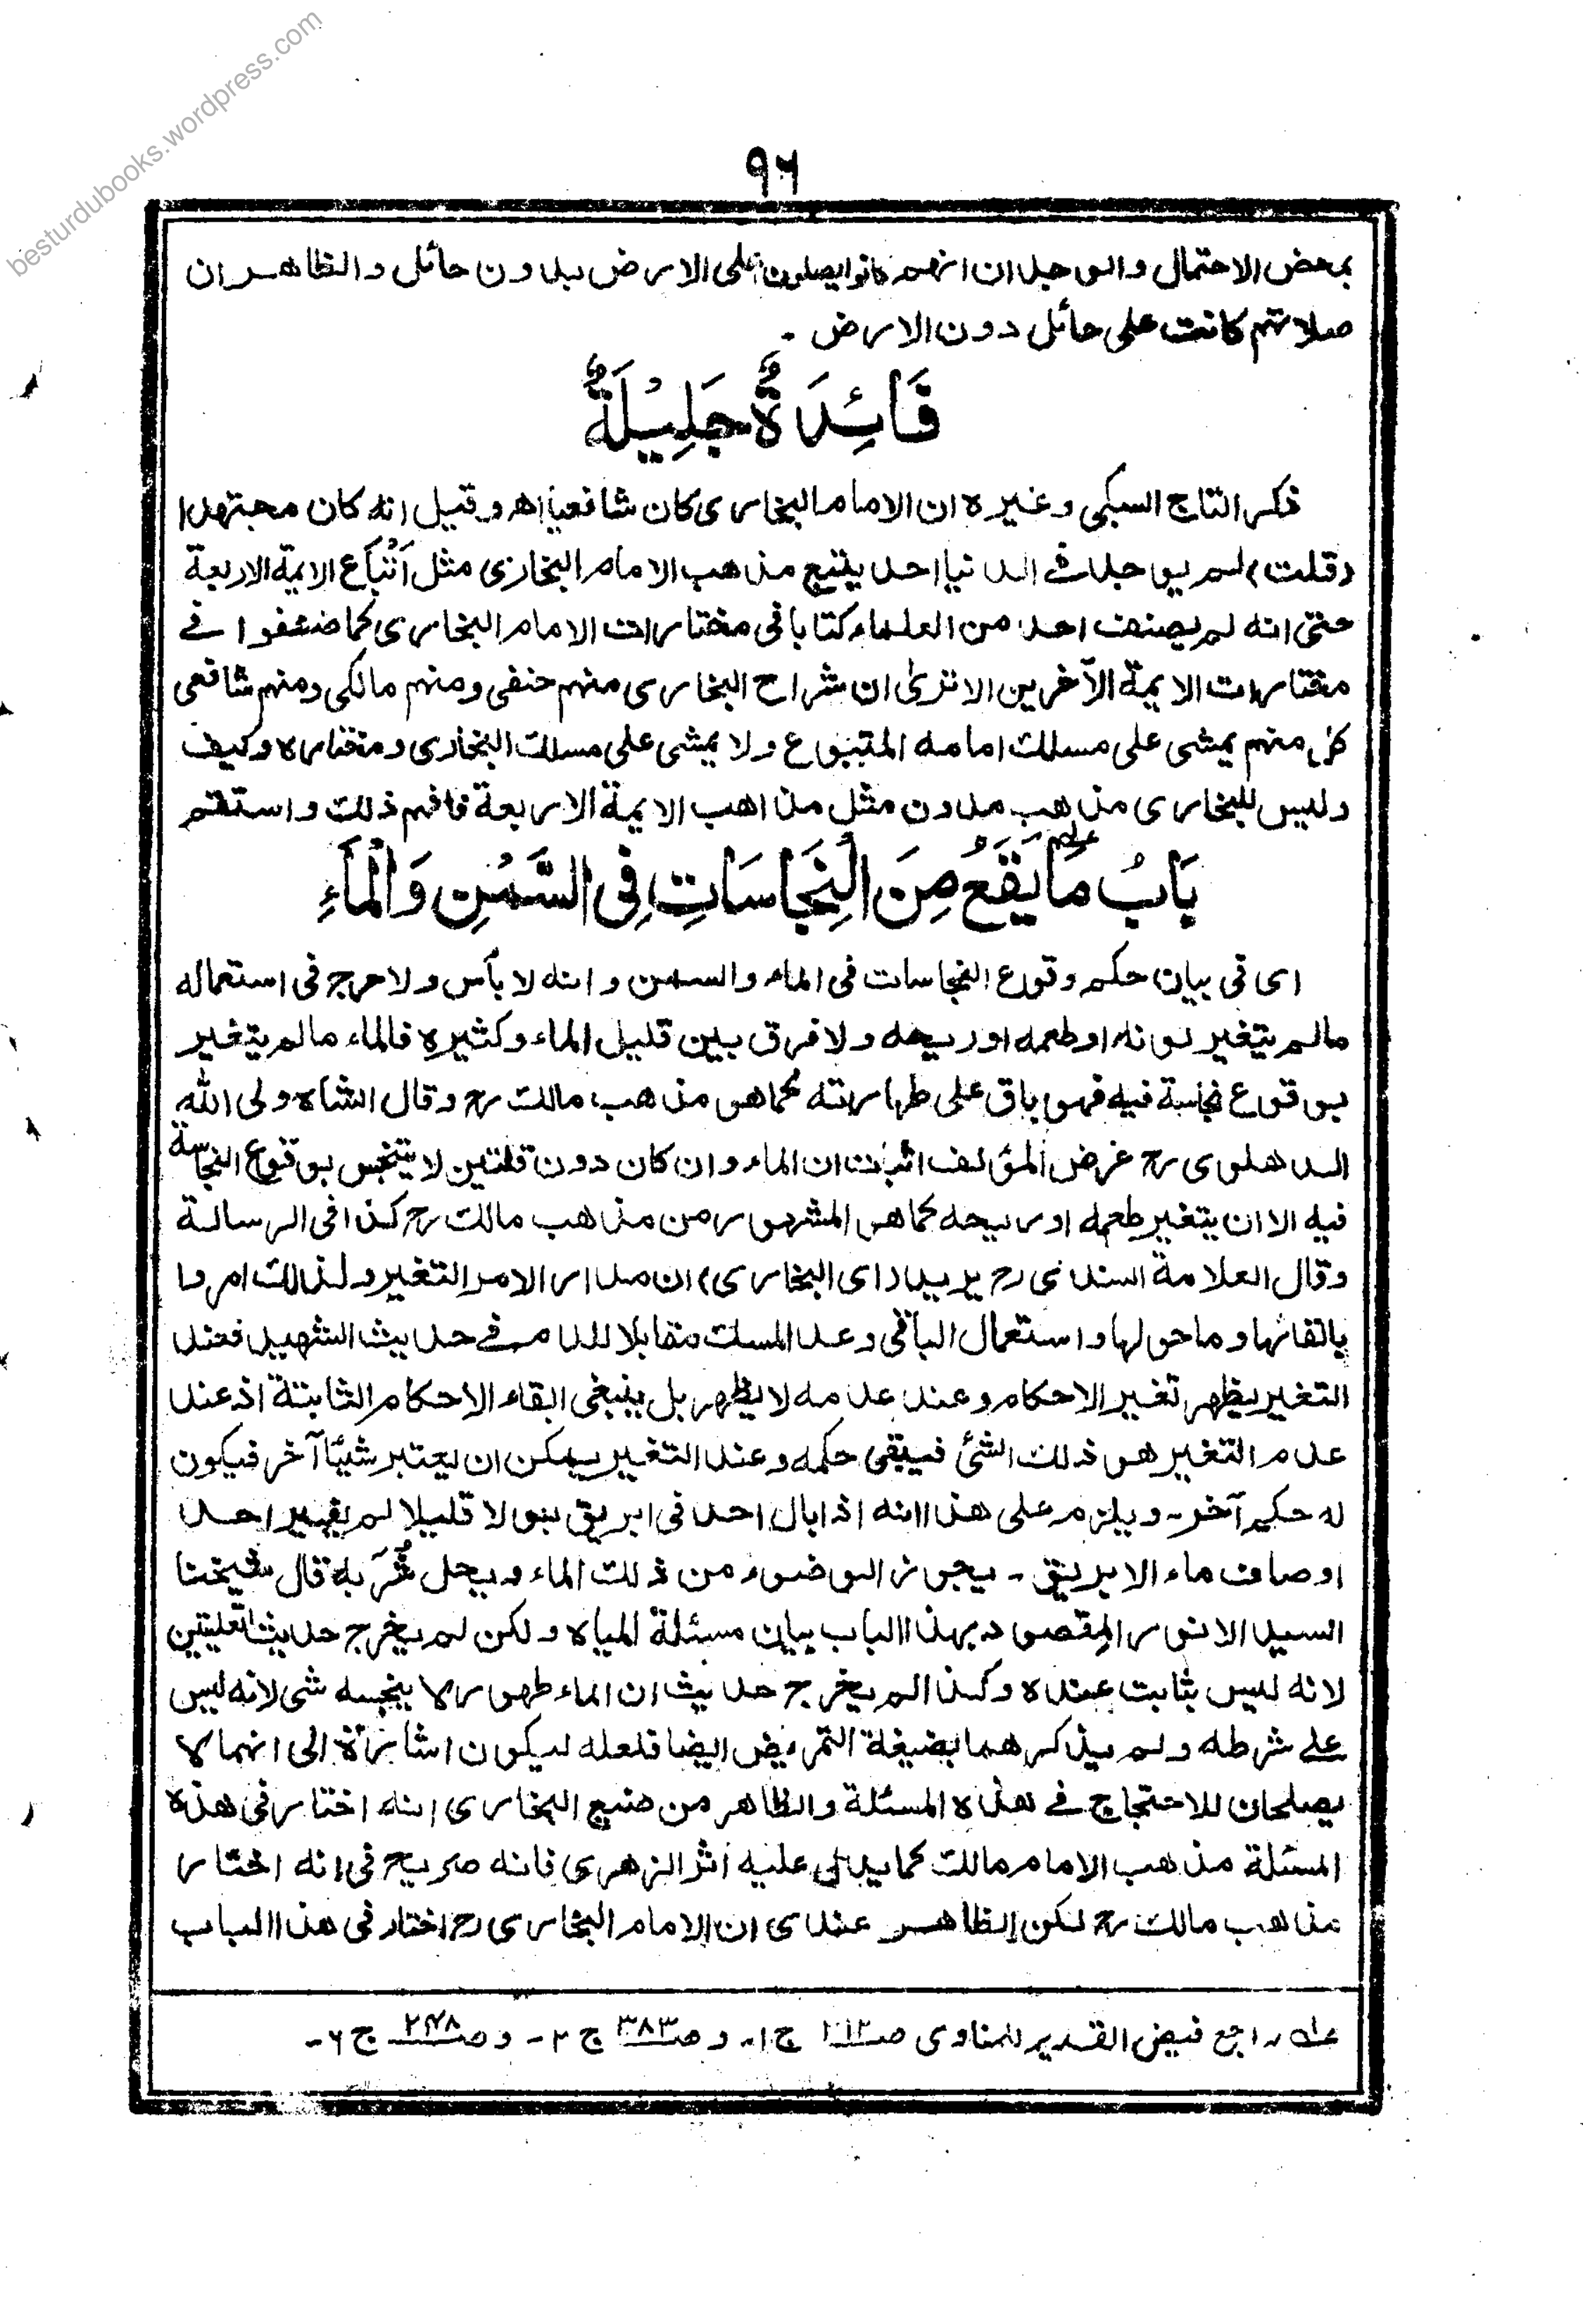 besturdubooks.wordpress.com
٩٦
بمحض الاحتمال والوجدان انهم كانوا يصلون على الارض بدون حائل والظاهر ان
صلاتهم كانت على حائل دون الارض -
فَائِدَةٌ جَلِيْلَةٌ
ذكر التاج السبكى وغيره ان الامام البخارى كان شافعيا اھ وقيل انه كان مجتهدا
(قلت) لم يوجد فى الدنيا احد يتبع مذهب الامام البخارى مثل اَتْبَاع الايمة الاربعة
حتى انه لم يصنف احد من العلماء كتابا فى مختارات الامام البخارى كما صنفوا فى
مختارات الايمة الآخرين الا ترى ان شراح البخارى منهم حنفى ومنهم مالكى ومنهم شافعى
كل منهم يمشى على مسلك امامه المتبوع ولا يمشى على مسلك البخارى ومختاره وكيف
وليس للبخارى مذهب مدون مثل مذاهب الايمة الاربعة فافهم ذلك واستقم
بَابُ مَا يَقَعُ مِنَ النِّجَاسَاتِ فِى السَّمْنِ وَالْمَاءِ
اى فى بيان حكم وقوع النجاسات فى الماء والسمن وانه لا بأس ولا حرج فى استعماله
مالم يتغير لونه او طعمه او ريحه ولا فرق بين قليل الماء وكثيره فالماء مالم يتغير
بوقوع نجاسة فيه فهو باق على طهارته كما هو مذهب مالك رح وقال الشاه ولى الله
الدهلوى رح غرض المؤلف اثبات ان الماء وان كان دون قلتين لا يتنجس بوقوع النجاسة
فيه الا ان يتغير طعمه او ريحه كما هو المشهور من مذهب مالك رح كذا فى الرسالة
وقال العلامة السندى رح يريد (اى البخارى) ان مدار الامر التغير ولذالك امروا
بالقائها وما حولها واستعمال الباقى وعد المسك مقابلا للدم فى حديث الشهيد فعند
التغير يظهر تغير الاحكام وعند عدمه لا يظهر بل ينبغى ابقاء الاحكام الثابتة اذ عند
عدم التغير هو ذلك الشئ فيبقى حكمه وعند التغير يمكن ان يعتبر شيئا آخر فيكون
له حكم آخر - ويلزم على هذا انه اذا بال احد فى ابريق بولا قليلا لم يغير احد
اوصاف ماء الابريق - يجوز الوضوء من ذلك الماء ويحل شُربه قال شيخنا
السيد الانور المقصود بهذا الباب بيان مسئلة المياه ولكن لم يخرج حديث القلتين
لانه ليس بثابت عنده وكذا لم يخرج حديث ان الماء طهور لا ينجسه شى لانه ليس
على شرطه ولم يذكرهما بصيغة التمريض ايضا فلعله ليكون اشارة الى انهما لا
يصلحان للاحتجاج فى هذه المسئلة والظاهر من صنيع البخارى انه اختار فى هذه
المسئلة مذهب الامام مالك كما يدل عليه اثر الزهرى فانه صريح فى انه اختار
مذهب مالك رح لكن الظاهر عندى ان الامام البخارى رح اختار فى هذا الباب
عله راجع فيض القدير للمناوى ج ١- و صـ ٣٨٣ ج ٢- و صـ ٢٤٨ ج ٦-